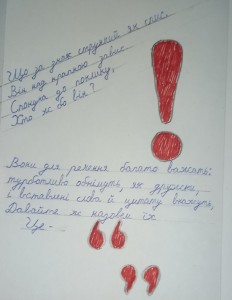 Що за знак стрункий як спис.
Він над крапкою завис
Спонука до поклику,
Хто ж бо він?
!
Вони для речення багато важать:
турботливо обнімуть, як дружки,
і вставлені слова й цитату вкажуть,
Давайте ж назовем їх
Це -
“ ”